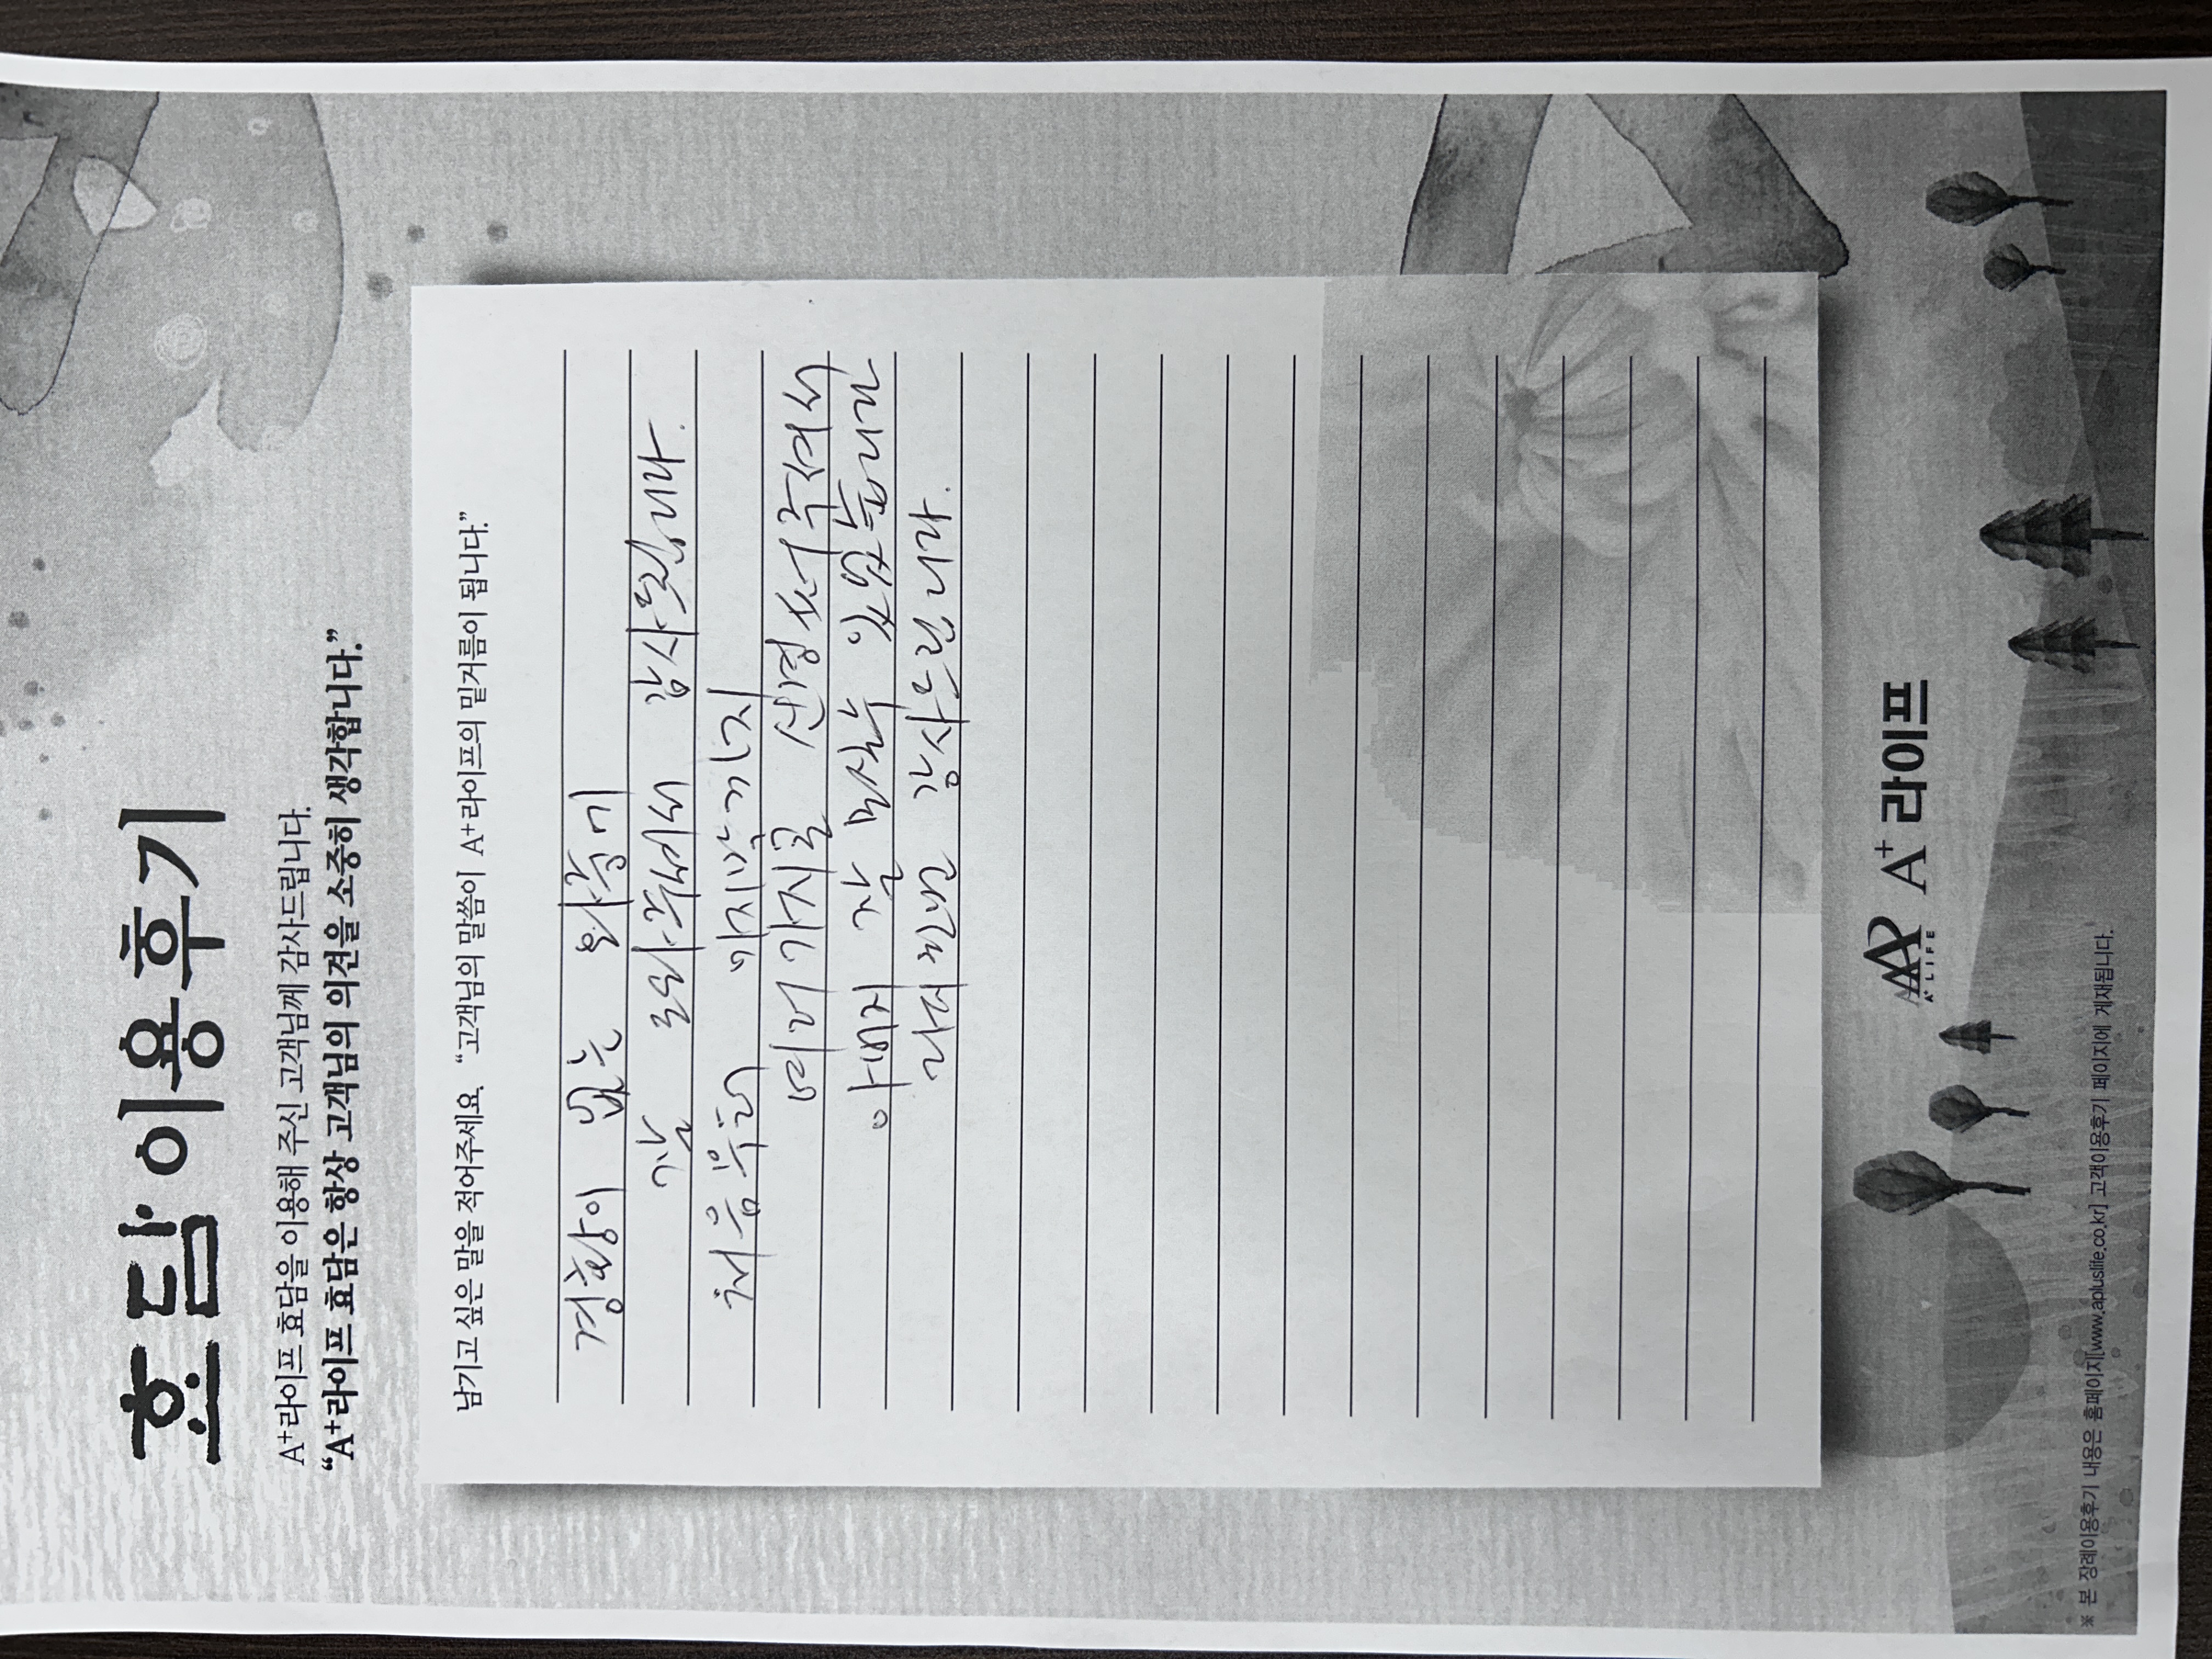 효담이용후기
A⁺라이프 효담을 이용해 주신 고객님께 감사드립니다.
“A⁺라이프 효담은 항상 고객님의 의견을 소중히 생각합니다.”
남기고 싶은 말을 적어주세요. “고객님의 말씀이 A⁺라이프의 밑거름이 됩니다.”
경황이 없는 와중에
잘 도와주셔서 감사드립니다.
처음부터 마지막까지
여러가지로 신경써주셔서
아버지 잘 보실수 있었습니다
다시한번 감사드립니다.
A⁺ LIFE
A⁺라이프
※ 본 장례이용후기 내용은 홈페이지[www.apluslife.co.kr] 고객이용후기 페이지에 게재됩니다.